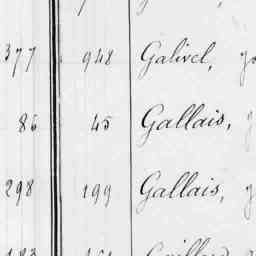 377 948 Galivel,
86 45 Gallais,
298 199 Gallais,